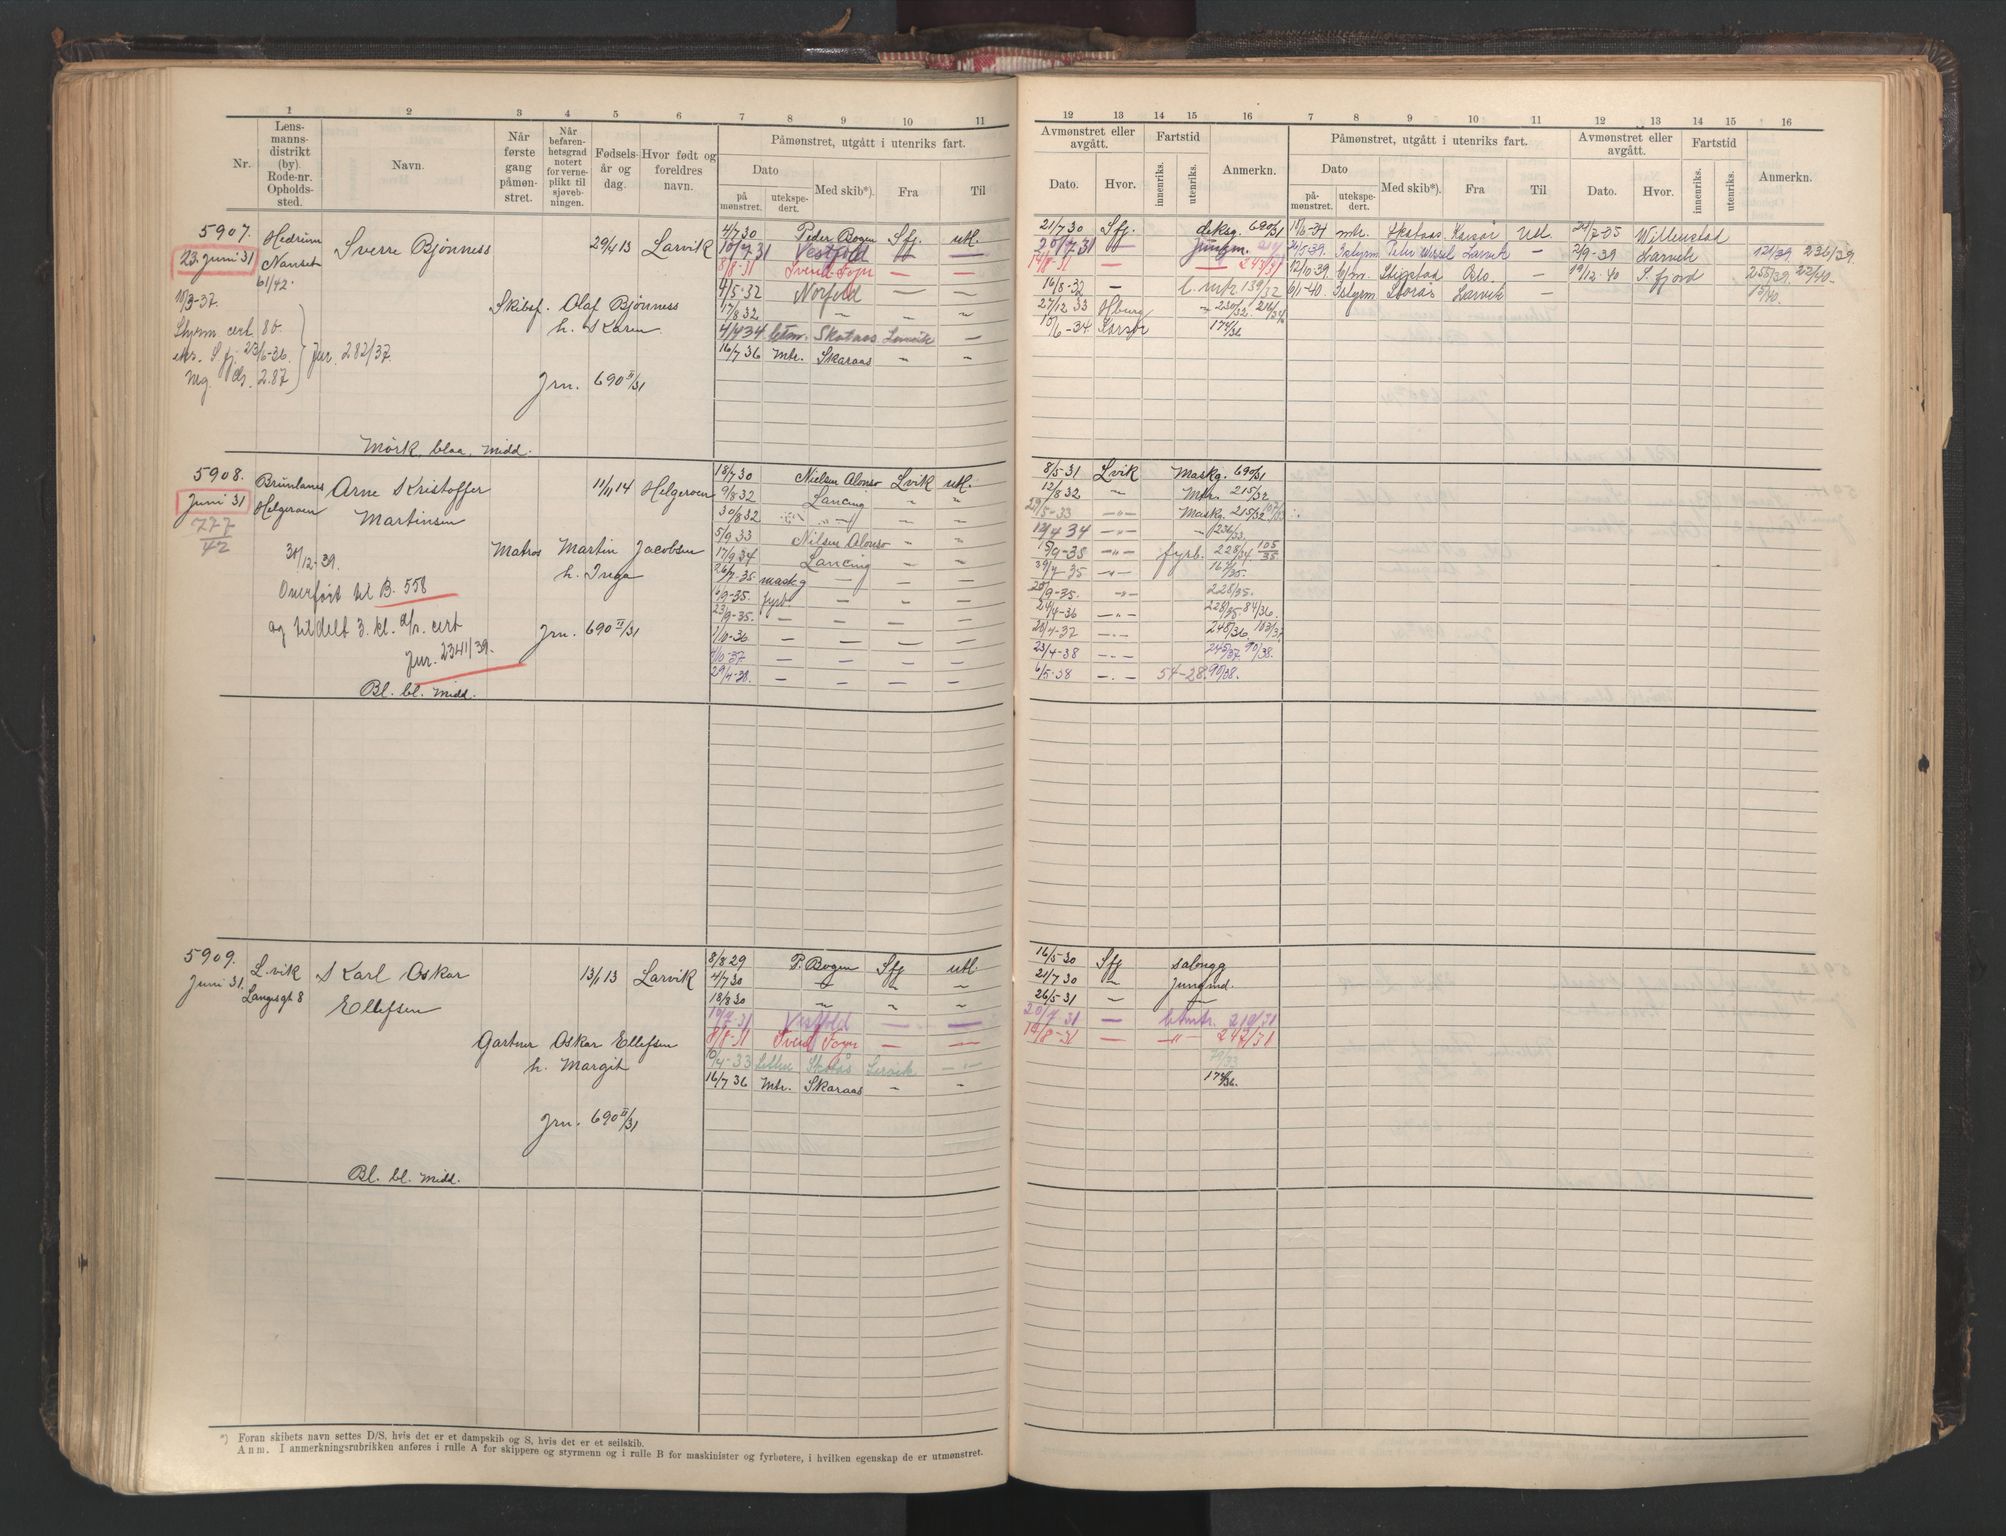 1 2 3 4 5 6 7 8 9 10 11
Nr.
Lensmannsdistrikt (by). Rode-nr. Opholdssted.
Navn.
Når første gang påmønstret.
Når befarenhetsgrad notert for verneplikt til sjøvebningen.
Fødselsår og dag.
Hvor født og foreldres navn.
Påmønstret, utgått i utenriks fart.
Dato
på mønstret.
utekspedert.
Med skib*).
Fra
Til
12 13 14 15 16 7 8 9 10 11 12 13 14 15 16
Avmønstret eller avgått.
Dato.
Hvor.
Fartstid
innenriks.
utenriks.
Anmerkn.
Påmønstret, utgått i utenriks fart.
Dato
på mønstret.
utekspedert.
Med skib*).
Fra
Til
Avmønstret eller avgått.
Dato.
Hvor.
Fartstid
innenriks.
utenriks.
Anmerkn.
5907.
23. Juni 31
Hedrum
Nanset
61/42.
Sverre Bjønness
29/4 13 Larvik
Skibef. Olaf Bjønness
h. Karen
10/3-37.
Styrm. cert. 80.
eks. Sfj. 23/6-36.
Jur. 282/37.
Jrn. 690 II/31
Mørk, blaa, midd.
4/7 30 Peder Bogen Sfj. utl.
10/7 31 Vestfold — —
8/8-31 Svend Foyn — —
4/5-32 Norfold — —
17/8 32 " "
4/4 34 Skataas Larvik —
16/7 36 Mtr. Skaraas " "
21/7 30 Sfj. 690/31
20/7 31 — Jungm.
14/8-31 — 243/31
16/8-32 — 139/32
27/12 33 Hburg
10/6-34 Korsør 174/36
10/6-34 mtr. Skataas Korsør Utl 24/7-35 Willemstad
Peter Wessel Larvik — 2/9-39 Larvik 121/39. 236/39.
12/10 39. Oslo — 19/12-40 S.fjord 255/39. 22/40.
6/1-40. Storås Larvik 15/40.
5908.
Juni 31
777/42
Brunlanes
Helgeroen
Arne Kristoffer
Martinsen
11/11 14 Helgeroen
Matros Martin Jacobsen
h. Inga
30/12-39.
Overført til B. 558
og tildelt 3. kl. cert
Jur. 2341/39.
Jrn. 690 II/31
Bl. bl. midd.
18/7 30 Nielsen Alonso Lvik utl.
9/8 32 Lancing " "
30/8 32 " " "
5/9 33 Nilsen Alonso " "
17/9 34 Lancing " "
26/7-35 maskg — — —
4/9-35. fyrb. — — —
23/9-35. — — —
1/10-36 — — —
4/10-37 — — —
29/4-38. — — —
8/5-31 Lvik Maskg. 690/31
12/8 32 " Mtr. 215/32
29/5-33 " Maskg. 215/32 107/33
12/4 34 " 236/33.
19/9-35 " fyrb. 228/34 105/35
"
20/9-35. " 228/35.
24/4-36 " 228/35. 84/36.
— 248/36. 103/37
23/4-38 — 245/37. 90/38.
6/5-38 — 54-28. 90/38.
5909.
Juni 31.
L.vik
Langesgt 8
Karl Oskar
Ellefsen
13/1 13 Larvik
Gartner Oskar Ellefsen
h. Margit
Jrn. 690 II/31
Bl. bl. midd.
8/8 29 P. Bogen Sfj utl.
4/7 30 — " "
18/8 30 " " "
10/7 31 Vestfold — —
8/8-31 Svend Foyn — —
10/4-33 Skatås Larvik —"—
16/7 36 Mtr. Skaraas " "
16/5-30 Sfj salongg
21/7 30 " Jungmd.
26/5 31 " —
20/7 31 — 219/31
19/8-31 — —"— 242/31
79/33
174/36.
*) Foran skibets navn settes D/S, hvis det er et dampskib og S, hvis det er et seilskib.
Anm. I anmerkningsrubrikken anføres i rulle A for skippere og styrmenn og i rulle B for maskinister og fyrbøtere, i hvilken egenskap de er utmønstret.